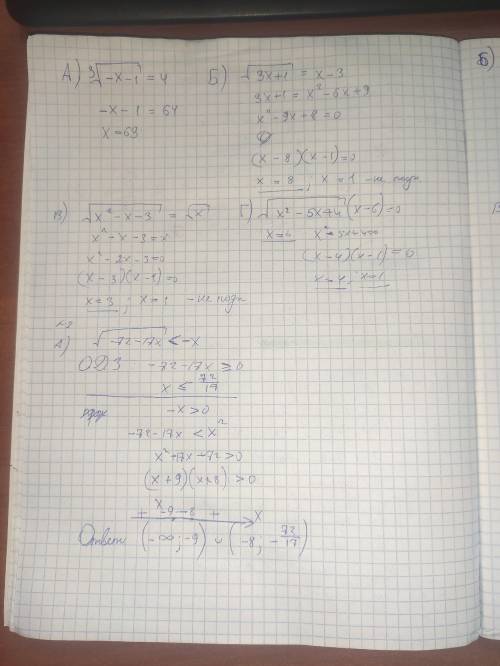 А) ∛(-x-1) = 4
-x-1 = 64
x=69
Б) √(3x+1) = x-3
3x+1 = x²-6x+9
x²-9x+8=0
(x-8)(x-1)=0
x=8; x=1 -не подх
В) √(x²-x-3) = √x
x²-x-3=x
x²-2x-3=0
(x-3)(x-1)=0
x=3; x=1 -не подх
Г) √(x²-5x+4)(x-6)=0
x²-5x+4=0
(x-4)(x-1)=0
x=4; x=1
А) √(-72-17x) < -x
ОДЗ: -72-17x ≥0
-x>0
-72-17x < x²
x²+17x+72>0
(x+9)(x+8)>0
+ -9 -8 + x
Ответ: (-∞; -9) ∪ (-8; -72/17)
Б)